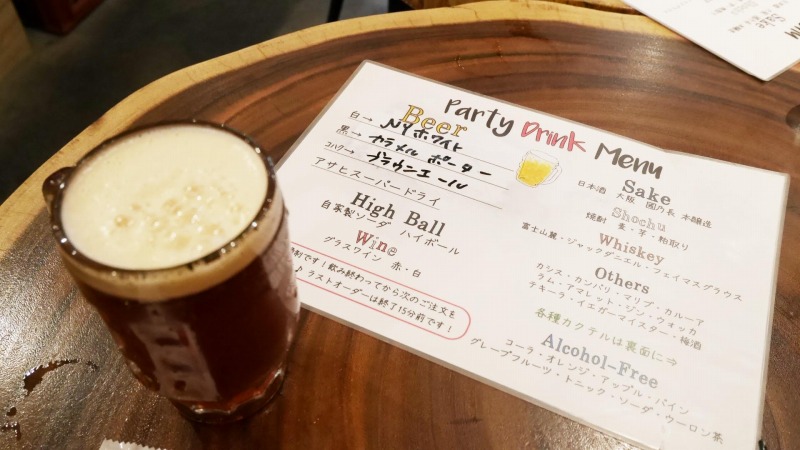 Party Drink Menu
Beer
白→ NYホワイト
黒→ カラメル ポーター
コハク→ ブラウンエール
アサヒスーパードライ
High Ball
自家製ソーダ ハイボール
Wine
グラスワイン 赤・白
制です!飲み終わってから次のご注文を
♪ラストオーダーは終了15分前です!
Sake
日本酒 大阪 國乃長 本醸造
Shochu
焼酎 麦・芋・粕取り
Whiskey
富士山麓・ジャックダニエル・フェイマスグラウス
Others
カシス・カンパリ・マリブ・カルーア
ラム・アマレット・ジン・ウォッカ
テキーラ・イエガーマイスター・梅酒
各種カクテルは裏面に⇒
Alcohol-Free
コーラ・オレンジ・アップル・パイン
グレープフルーツ・トニック・ソーダ・ウーロン茶
Sake